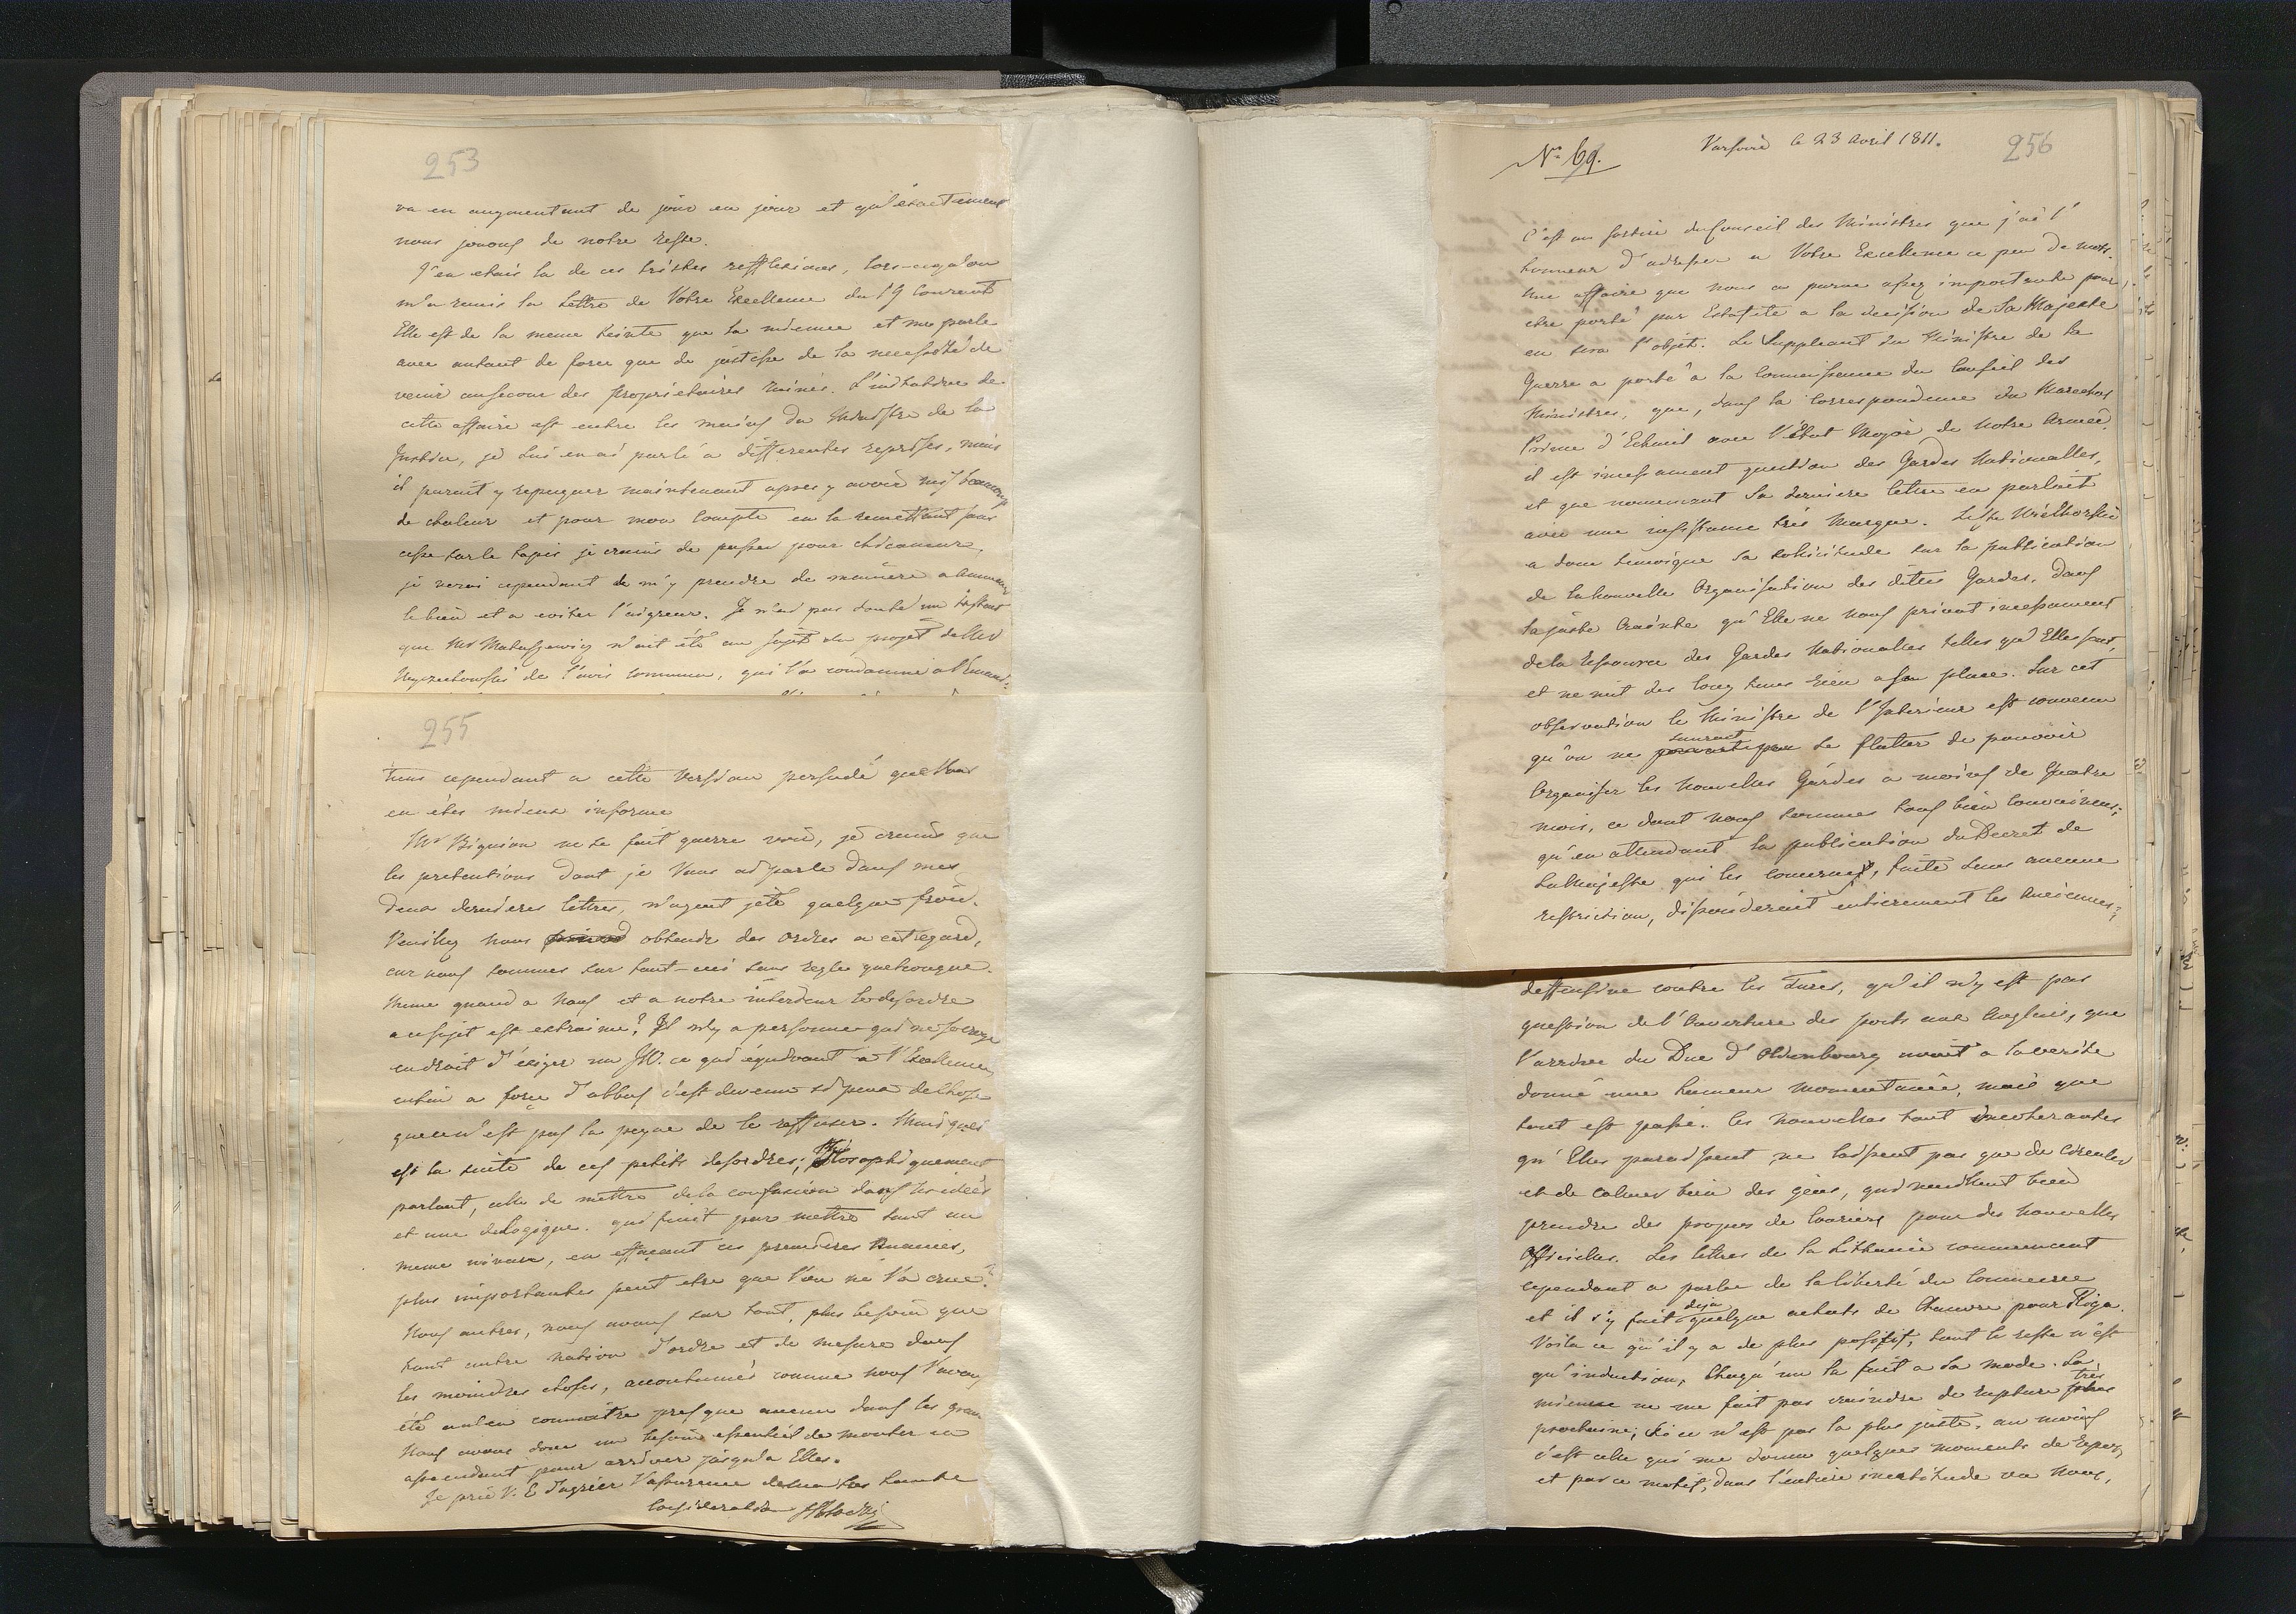 253
va en augmentant de jour en jour et qu'exactement
nous jouons de notre reste.
J'en etais la de ces tristes refflexions, lors-cequ'on
m'a remis la Lettre de Votre Excellence du 19 Courent
Elle est de la meme teinte que la mienne et me parle
avec autant de force que de justisse de la necessité de
venir ausecour des proprietaires ruinés. L'initiative de
cette affaire est entre les mains du Ministre de la
Justice, je lui en ai parlé a differentes reprises, mais
il parait y repugner maintenant apres y avoir mis beaucoup
de chaleur et pour mon compte en la remettant sans
cesse sur le tapis je crains de passer pour chicaneur,
je verai cependant de m'y prendre de maniere a
le bien et a eviter l'aigreur. Je n'ai pas douté un instant
que Mr Matuszewicz n'ait été au sujet du projet de Mr
de l'avis commun, qui l'a condamné a
255
tiens cependant a cette version persuadé que Vous
en êtes mieux informé
Mr Bignion ne se fait guerre voir, je crains que
les pretentions dont je Vous ai parlé dans mes
deux dernieres lettres, n'ayent jeté quelque froid.
Veuillez nous obtenir des ordres a cet egard,
car nous sommes sur tout-ceci sans regle quelconque.
Meme quand a nous et a notre interieur le desordre
a ce sujet est extraime? Il n'y a personne qui ne se croye
endroit d'exiger un JW. ce qui équivaut a l'Excellence
enfin a force d'abbus c'est devenu si peu de chose
que ce n'est pas la peyne de le reffuser. Mais quel
est la suite de ces petits desordres; Philosophiquement
parlant, celle de mettre de la confusion dans les idées
et une delogique. qui finit par mettre tout au
meme niveau, en effaçant ces premieres nuances,
plus importantes peut etre que l'on ne l'a crue?
Nous autres, nous avons sur tout, plus besoin que
tout autre nation d'ordre et de mesure dans
les moindres choses, accoutumés comme nous l'avons
été a n'en connoitre presque aucune dans les gran
Nous avons donc un besoin essentiel de monter en
assendant pour arriver jusqu'a Elles.
Je prie V. E d'agréer l'assurence de ma tres haute
Consideration
256
No 69.
Varsovie le 23 Avril 1811.
C'est au sortire du Conseil des Ministres que j'ai l'
honneur d'adresser a Votre Excellence ce peu de mots.
Une affaire que nous a parue assez importante pour
etre porté par Estafete a la decision de Sa Majesté
en sera l'objet. Le Suppleant du Ministre de la
Guerre a porté a la Connoissance du Conseil des
Ministres, que, dans la Correspondence du Marechal
Prince d'Ekmul avec l'état Major de notre Armée,
il est incessament question des Gardes Nationalles,
et que nomement Sa derniere lettre en parlait
avec une insistance très marqué. Le Gal Wielhorski
a donc temoigné sa solicitude sur la publication
de la nouvelle Organisation des dites Gardes, dans
la juste Crainte qu'Elle ne nous privat incessament
de la ressource des Gardes Nationalles telles qu'Elles sont,
et ne mit des long tems rien a sa place. Sur cet
observation le Ministre de l'Interieur est convenu
qu'on ne sauroit se flatter de pouvoir
Organiser les nouvelles Gardes a moins de Quatre
mois, ce dont nous sommes tous bien convaincus;
qu'en attendant la publication du Decret de
Sa Majesté qui les concernet, faite sans aucune
restriction, dissouderait entierement les Anciennes;
deffensive contre les Turcs, qu'il n'y est pas
question de l'Ouverture des ports aux Anglais, que
l'arrivée du Duc d'Oldenbourg avait a la verité
donné une humeur momentanée, mais que
tout est passé. Ces nouvelles tout incoherantes
qu'Elles paraissent, ne laissent pas que de circuler
et de calmer bien des gens, qui veullent bien
prendre des propos de Couriers pour des nouvelles
Officielles. Les lettres de la Lithuanie commencent
cependant a parler de la liberté du Commerce
et il s'y fait deja quelque achats de Chanvre pour Riga.
Voila ce qu'il y a de plus positif, tout le reste n'est
qu'induction, Chaqu'un la fait a sa mode. La
mienne ne me fait pas craindre de rupture très
prochaine; Si ce n'est pas la plus juste, au moins
c'est celle qui me donne quelques moments de repos,
et par ce motif, dans l'entiere incertitude ou nous,